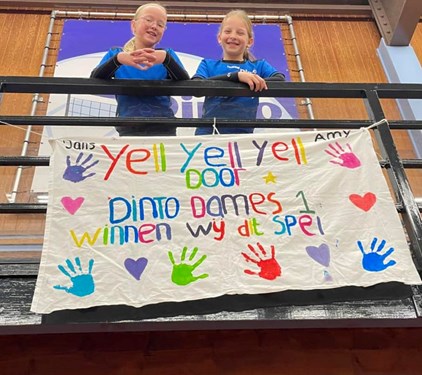 Janis Amy
Yell Yell Yell
DOOR
DINTO DAMES 1
winnen wy dit SPEl